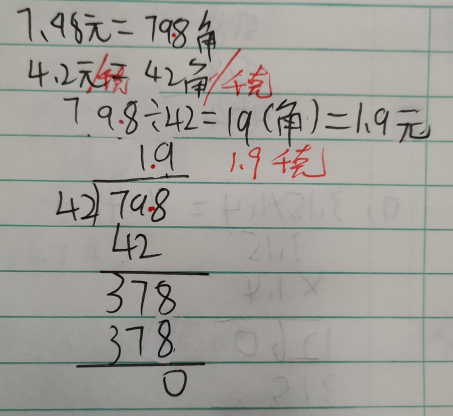 7.98元=79.8角
4.2元/千克=42角/千克
79.8÷42=19(角)=1.9元
1.9 1.9千克
42 79.8
42
378
378
0